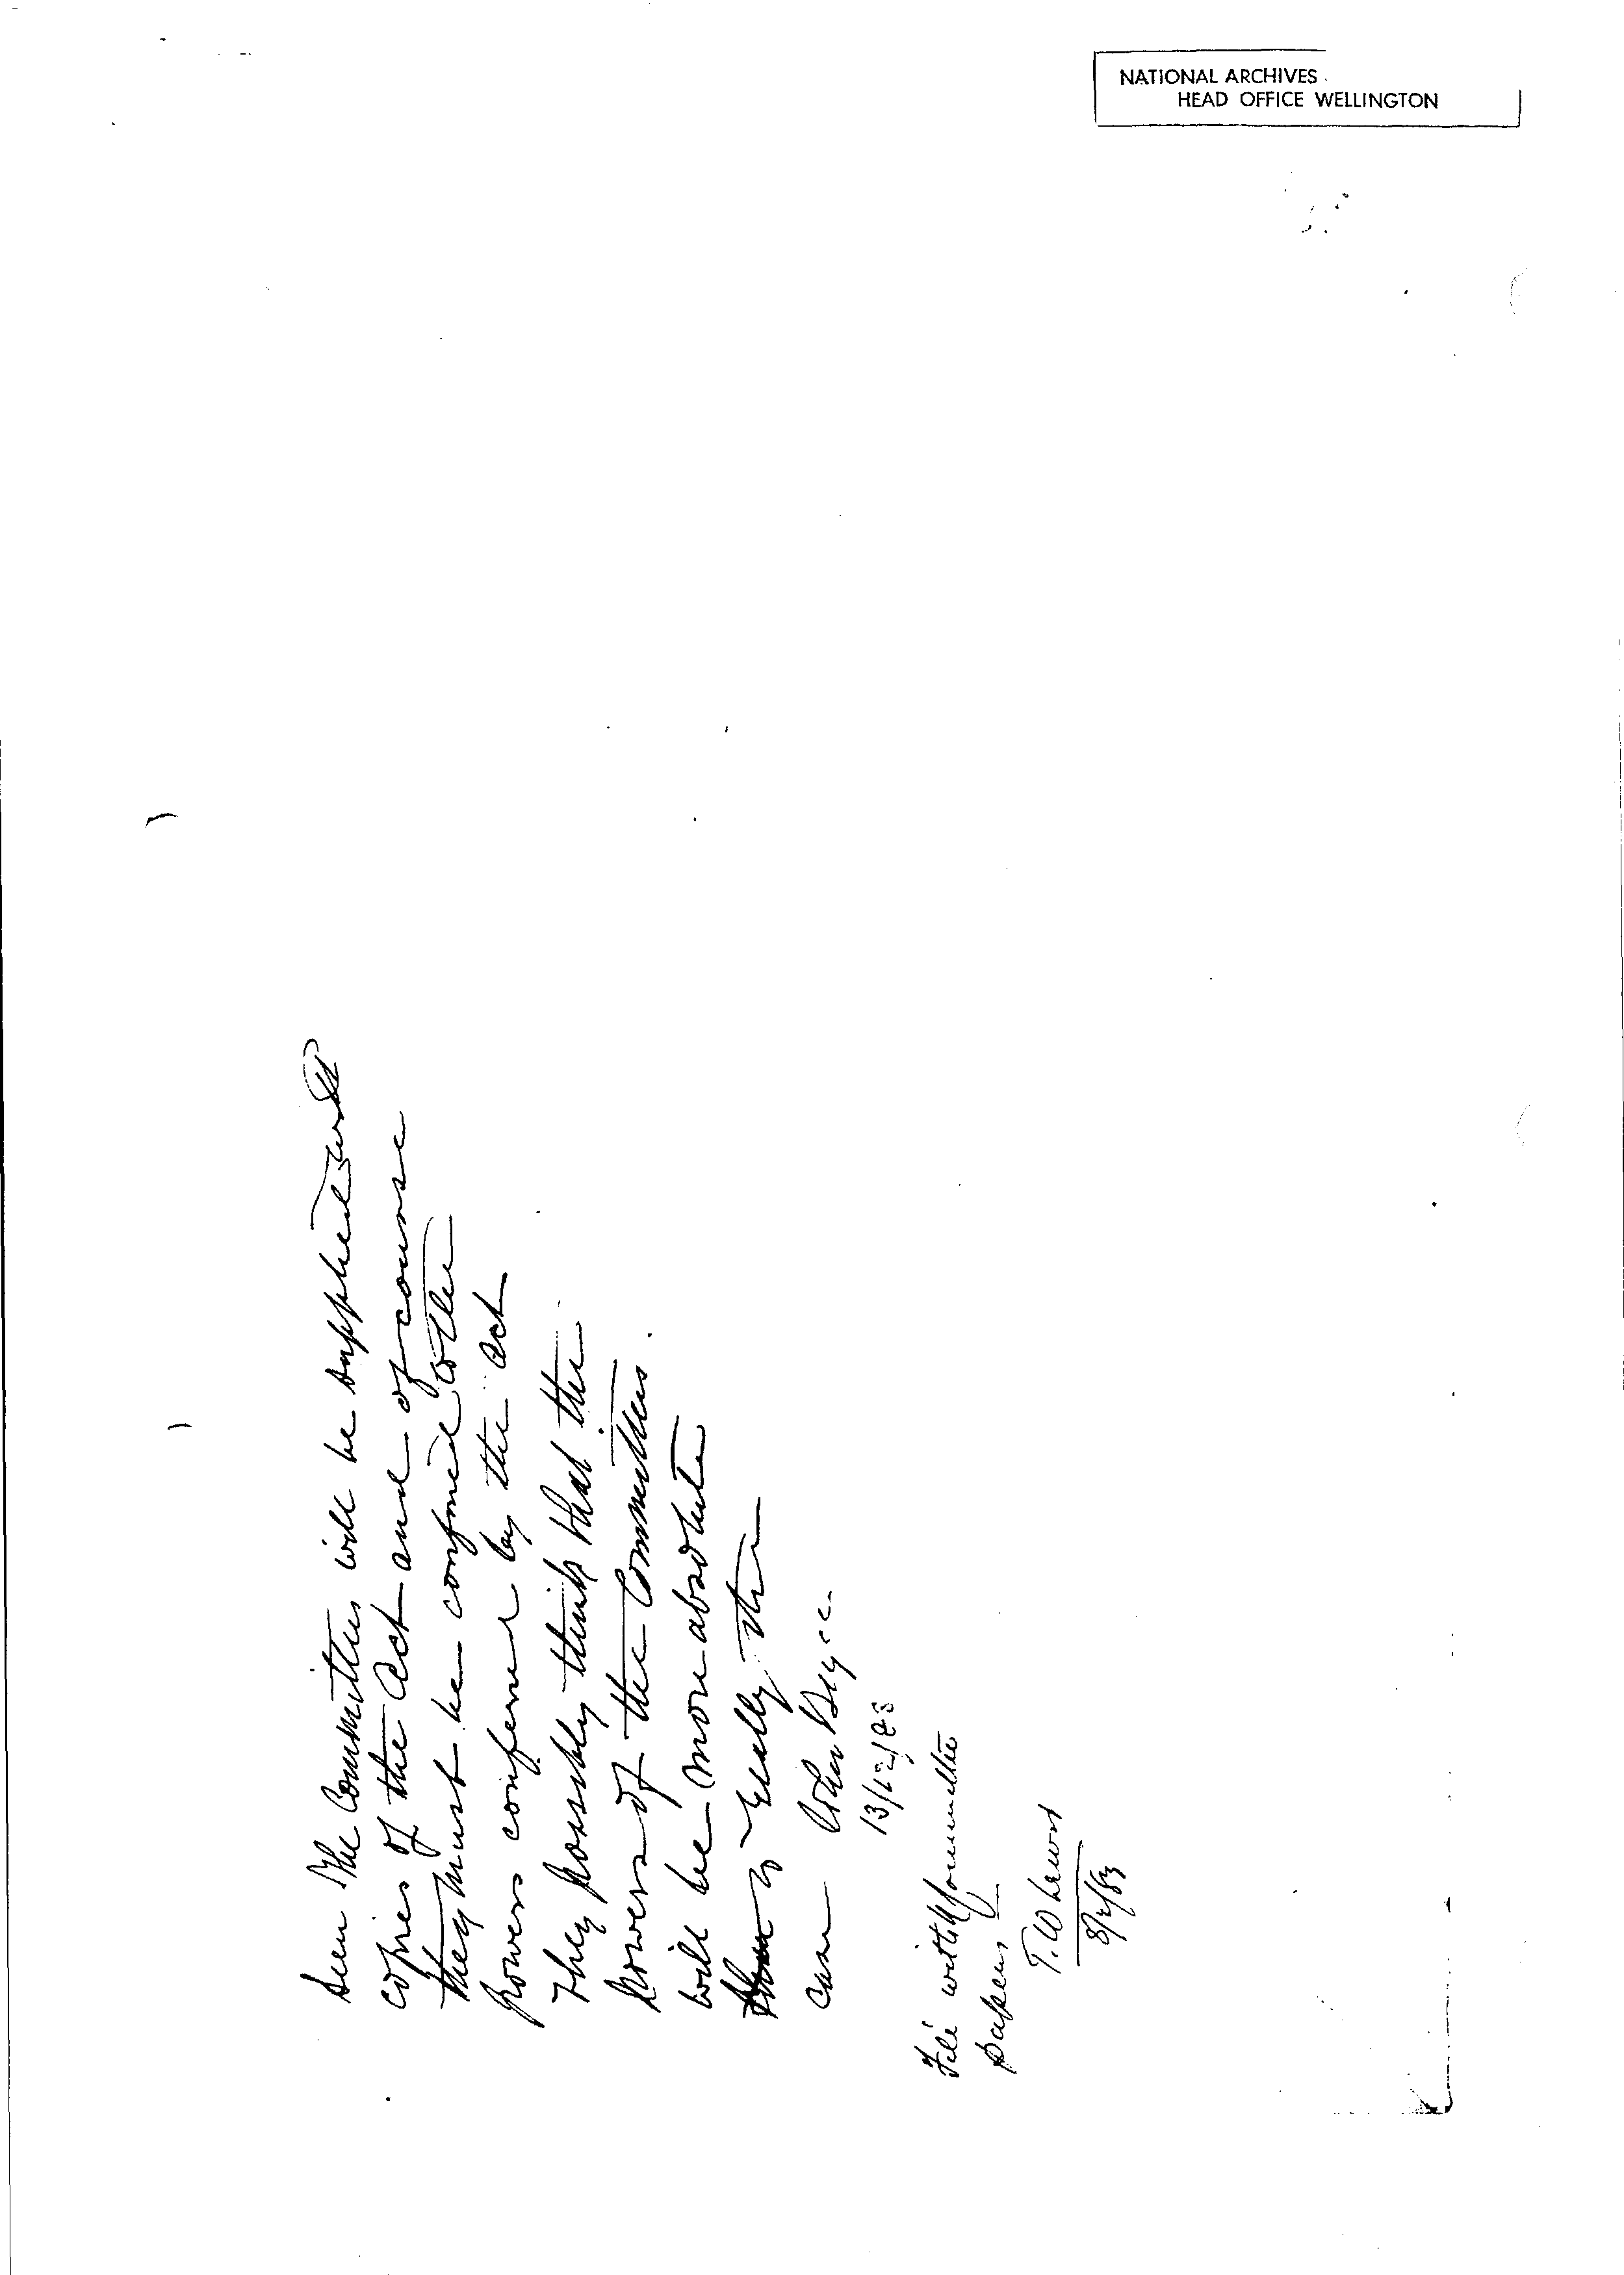 NATIONAL ARCHIVES
HEAD OFFICE WELLINGTON
Seen The Committees will be supplied with
copies of the Act and of course
they must be confined to the
powers conferred by the Act
They possibly think that the
powers of the Committees
will be more absolute
than is really the
case John Bryce
13/12/83
File with Committee
papers
T. W. Lewis